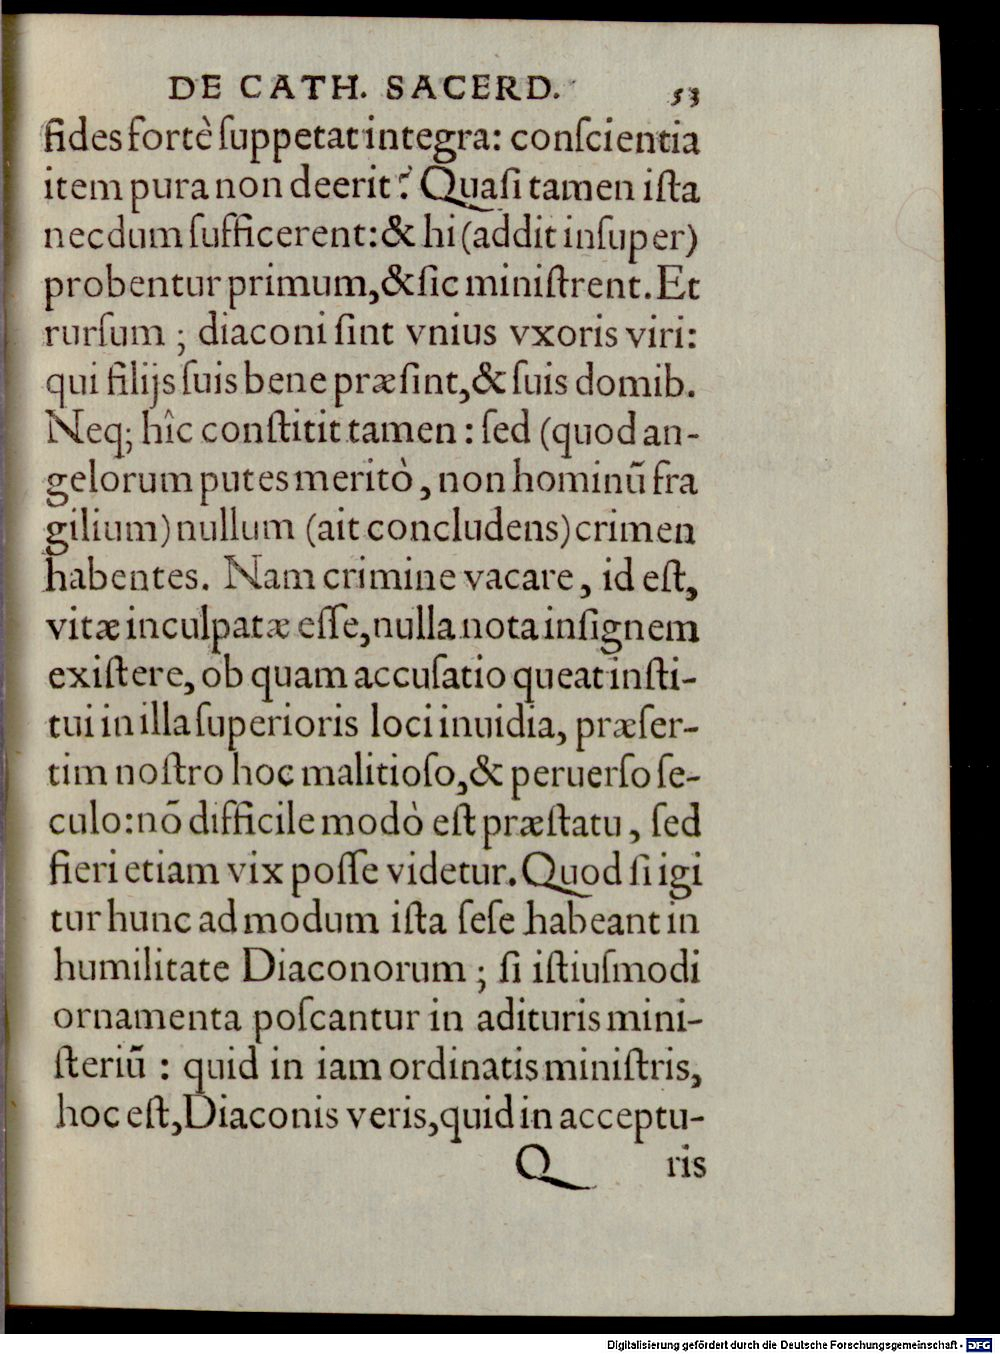 DE CATH. SACERD. 53
fides fortè ſuppetat integra: conſcientia
item pura non deerit? Quaſi tamen iſta
necdum ſufficerent: & hi (addit inſuper)
probentur primum, & ſic miniſtrent. Et
rurſum ; diaconi ſint vnius vxoris viri:
qui filijs ſuis bene præſint, & ſuis domib.
Neq; hîc conſtitit tamen : ſed (quod an-
gelorum putes meritò, non hominũ fra
gilium) nullum (ait concludens) crimen
habentes. Nam crimine vacare, id eſt,
vitæ inculpatæ eſſe, nulla nota inſignem
exiſtere, ob quam accuſatio queat inſti-
tui in illa ſuperioris loci inuidia, præſer-
tim noſtro hoc malitioſo, & peruerſo ſe-
culo: nõ difficile modò eſt præſtatu, ſed
fieri etiam vix poſſe videtur. Quod ſi igi
tur hunc ad modum iſta ſeſe habeant in
humilitate Diaconorum ; ſi iſtiuſmodi
ornamenta poſcantur in adituris mini-
ſteriũ : quid in iam ordinatis miniſtris,
hoc eſt, Diaconis veris, quid in acceptu-
Q ris
Digitalisierung gefördert durch die Deutsche Forschungsgemeinschaft - DFG